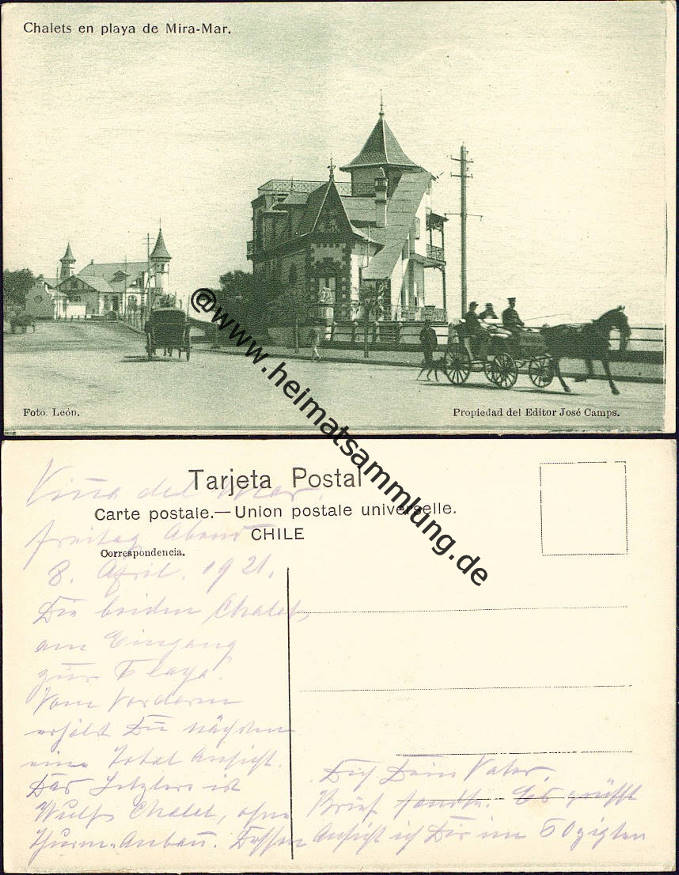 Chalets en playa de Mira-Mar.
Foto León.
Propiedad del Editor José Camps.
@www.heimatsammlung.de
Tarjeta Postal
Carte postale.—Union postale universelle.
CHILE
Correspondencia.
Viña del Mar.
Freitag Abend
8. April. 1921.
Die beiden Chalets,
am Eingang
zur Playa.
Vom Vorderen
erhälst Du nächstens
eine Total Ansicht.
Das Letztere ist
Wulff Chalet, ohne
Thurm-Anbau. Dessen Ansicht ich Dir im 50zigsten
Brief sandte. Es grüsst
Dich Dein Vater.